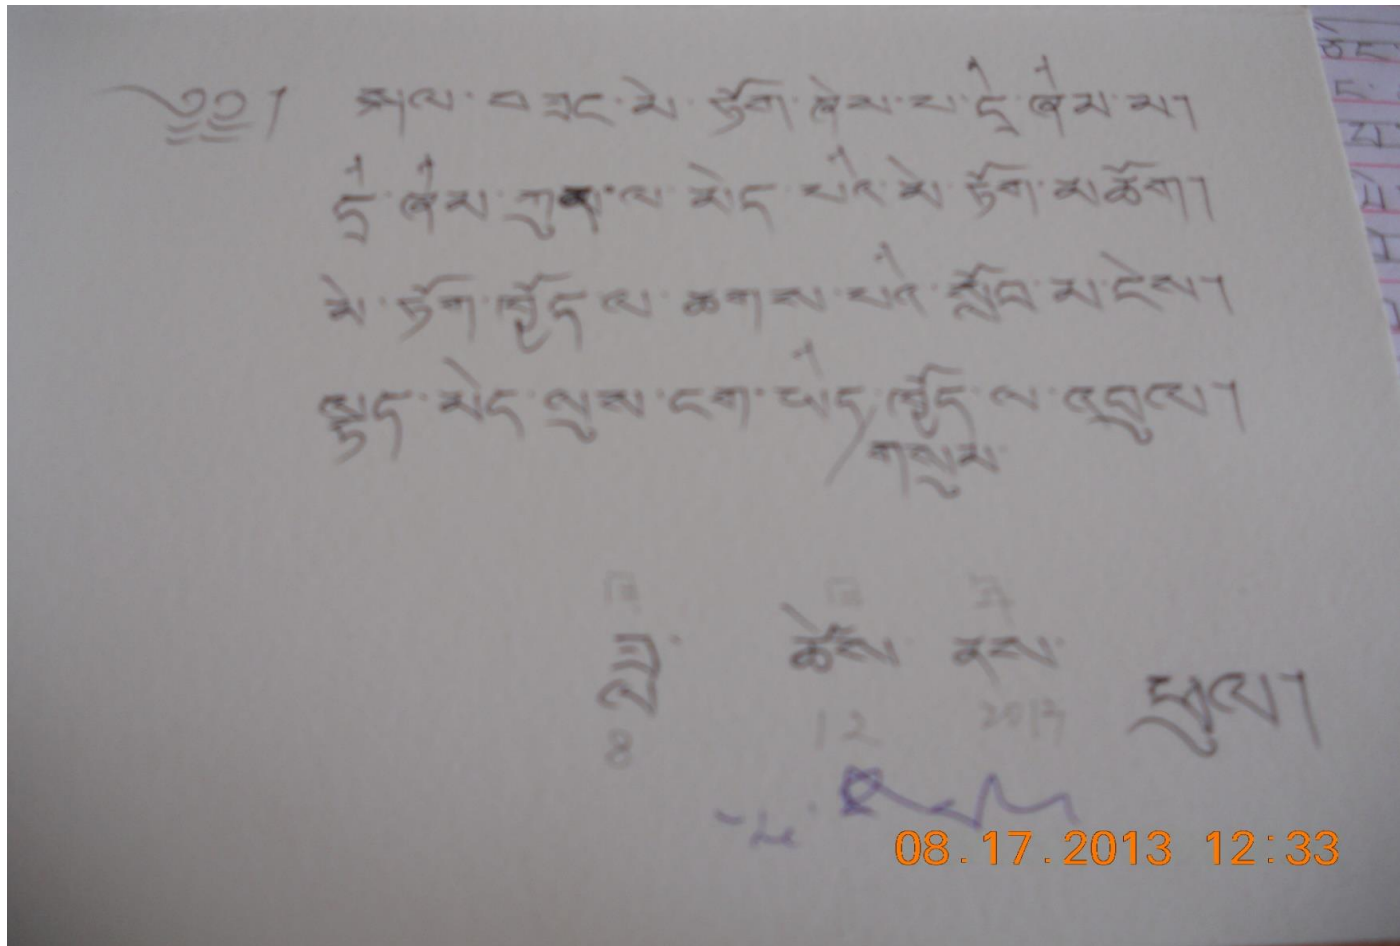 ༄༅། སྐལ་བཟང་མེ་ཏོག་ཞེས་པ་དྲི་ཞིམ་མ།
དྲི་ཞིམ་ཀུན་ལ་མེད་པའི་མེ་ཏོག་མཆོག།
མེ་ཏོག་ཁྱོད་ལ་ཆགས་པའི་སློབ་མ་ངེས།
མེད་ལུས་ངག་ཡིད་ཁྱོད་ལ་འབུལ།
གསུམ་
ཟླ་ ཚེས་ ནས་ ཕུལ།
8 12 2013
08.17.2013 12:33